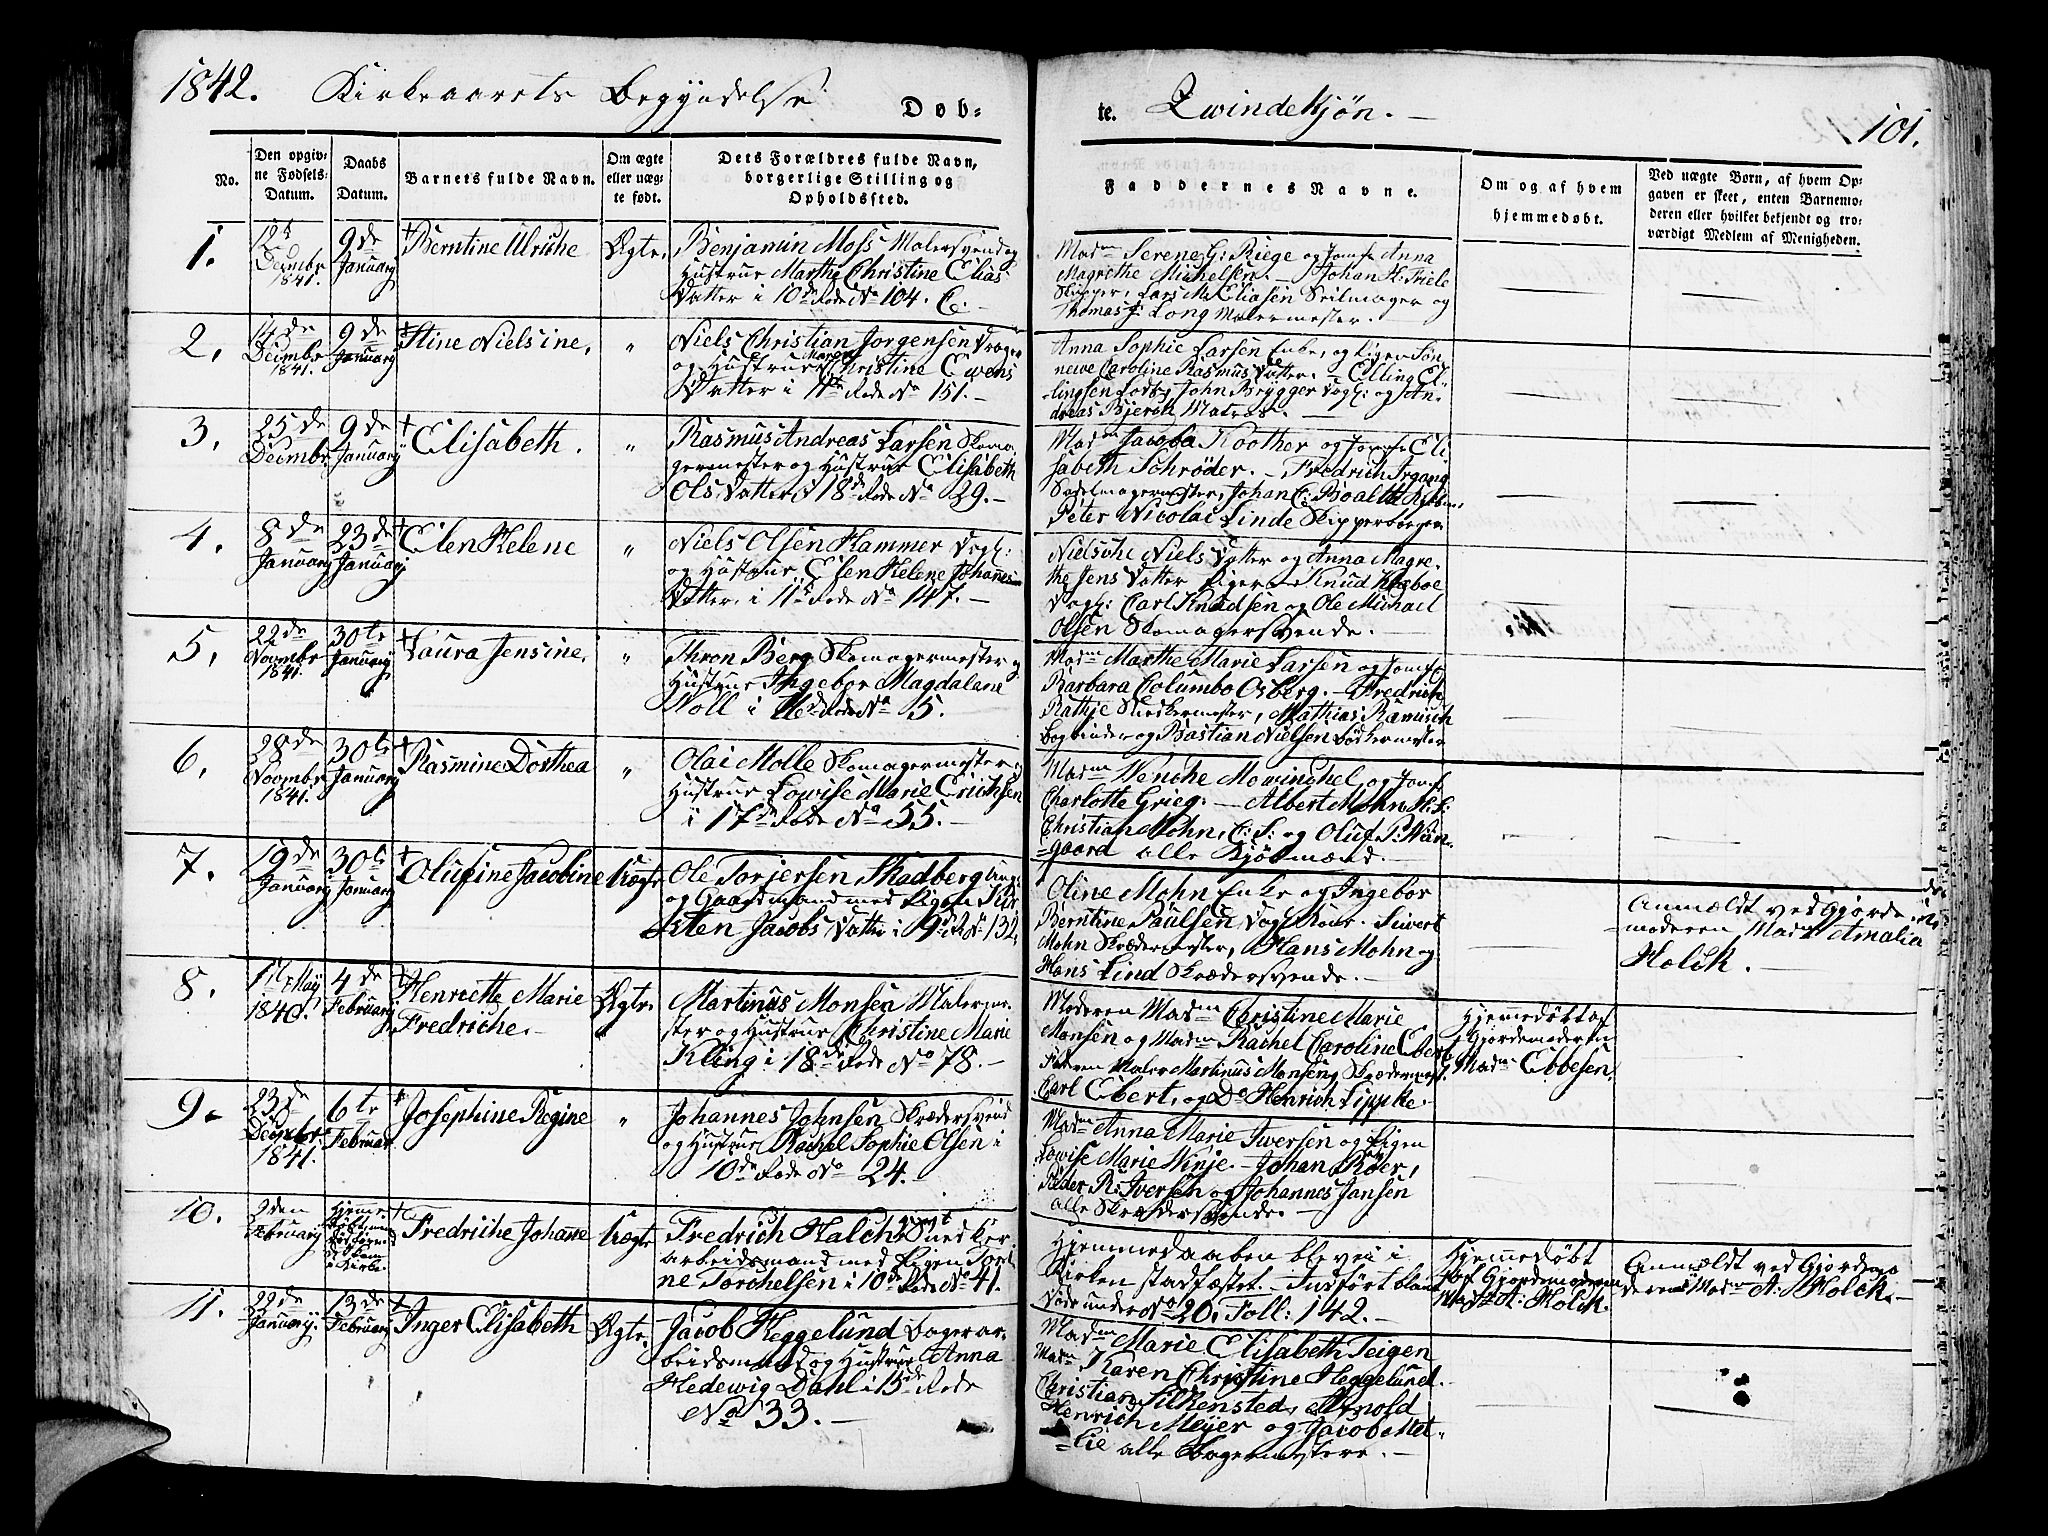 1842. Kirkeaarets Begyndelse
Døb-
te. Qvindekjøn.
101.
No.
Den opgiv-
ne Fødsels-
Datum.
Daabs
Datum.
Barnets fulde Navn.
Om ægte
eller uæg-
te født.
Dets Forældres fulde Navn,
borgerlige Stilling og
Opholdssted.
Faddernes Navne.
Om og af hvem
hjemmedøbt.
Ved uægte Børn, af hvem Op-
gaven er skeet, enten Barnemo-
deren eller hvilket bekjendt og tro-
værdigt Medlem af Menigheden.
1.
12te
Decembr
1841.
9de
January
Berntine Ulriche
Ægte.
Benjamin Moss Malersvend og
Hustrue Marthe Christine Elias
Datter i 10de Rode No 104.
Madm Serene G: Riege og Jomfr Anna
Magrethe Michelsen. Johan H: Friele
Skipper, Lars M: Eliasen Seilmager og
Thomas J: Long Malermester.
2.
14de
Decembr
1841.
9de
January
Stine Nielsine,
"
Niels Christian Jørgensen Drager
og Hustrue Maren Christine Ewens
Datter i 11te Rode No 151.
Anna Sophie Larsen Enke, og Pigen Søn-
newe Caroline Rasmus Datter. Elling El-
lingsen Lods, John Brygger Dagl: og An-
dreas Bjerch Matros.
3.
25de
Decembr.
9de
January
Elisabeth.
"
Rasmus Andreas Larsen Skoma-
germester og Hustrue Elisabeth
Ols Datter i 18de Rode No 29.
Madm Jacoba Koother og Jomfr Eli-
sabeth Schrøder. Fredrich Irgang
Sadelmagermester, Johan C: Boalth
Peter Nicolai Linde Skipperborger
4.
8de
January
23de
January
Elen Helene
"
Niels Olsen Hammer Dagl:
og Hustrue Elen Helene Johannes
Datter, i 11te Rode No 147.
Nielsche Niels Datter og Anna Magre-
the Jens Datter Piger. Knud Klæboe
Dagl: Carl Knudsen og Ole Michael
Olsen Skomagersvende.
5.
22de
Novembr
1841.
30te
January
Laura Jensine,
"
Thron Berg Skomagermester og
Hustrue Ingebor Magdalane
Holl i 16de Rode No 5.
Madm Marthe Marie Larsen og Jomfr
Barbara Columbo Osberg. Fredrich
Rathje Snedkermester, Mathias Ramisch
Bogbinder og Bastian Nielsen Bødkermester
6.
28de
Novembr
1841.
30te
January
Rasmine Dorthea
"
Olai Molle Skomagermester
Hustrue Lowise Marie Erichsen
i 17de Rode No 55.
Madm Wenche Mowinchel og Jomfr
Charlotte Grieg. Albert Mohn
Christian Mohn, og Oluf P: Wan-
gaard alle Kjøbmænd.
7.
19de
January
30te
January
Olufine Jacobine
Uægte
Ole Torjersen Skadberg
og Gaardmand med Pigen Kir
sten Jacobs Datter i 9de No 132.
Oline Mohn Enke og Ingebor
Berntine Paulsen Dagl: Kone. Siwert
Mohn Skrædermester, Hans Mohn og
Hans Lind Skrædersvende.
Anmældt ved Gjorde-
moderen Madm Amalia
Holck.
8.
17 May
1840.
4de
February
Henriette Marie
Fredriche.
Ægte.
Martinus Monsen Malerme-
ster og Hustrue Christine Marie
Kling i 18de Rode No 78.
Moderen Madm Christine Marie
Monsen og Madm Rachel Caroline Ebert
Faderen Maler Martinus Monsen, Skrædermest.
Carl Ebert, og Do Henrich Lippke.
Hjemmedøbt af
Gjordemoderen
Madm Ebbesen.
9.
23de
Decembr
1841.
6te
Februar.
Josephine Regine
"
Johannes Johnsen Skrædersvend
og Hustrue Rachel Sophie Olsen i
10de Rode No 24.
Madm Anna Marie Iwersen og Pigen
Lowise Marie Winje. Johan Røer,
Peder R: Iversen og Johannes Jansen
alle Skrædersvende.
10.
2den
February
Hjemme-
døbt
Kirke.
Fredriche Johanne
Uægte
Fredrich Halch ugivt
arbeidsmand med Pigen
ne Torchelsen i 10de Rode No 41.
Hjemmedaaben blev ei i
Kirken stadfæstet. Indført blant
Døde under No 20. Foll: 142.
Hjemmedøbt
af Gjordemoderen
Madm A: Holck.
Anmældt ved Gjordemo
deren Madm A: Holck.
11.
22de
January.
13de
February
Inger Elisabeth
Ægte.
Jacob Heggelund Bager ar-
beidsmand og Hustrue Anna
Hedewig Dahl i 15de Rode
No 33.
Madm Marie Elisabeth Teigen
Madm Karen Christine Heggelund.
Christian Silkensted, Arnold
Henrich Meyer og Jacob Met-
lie alle Bagermestere.